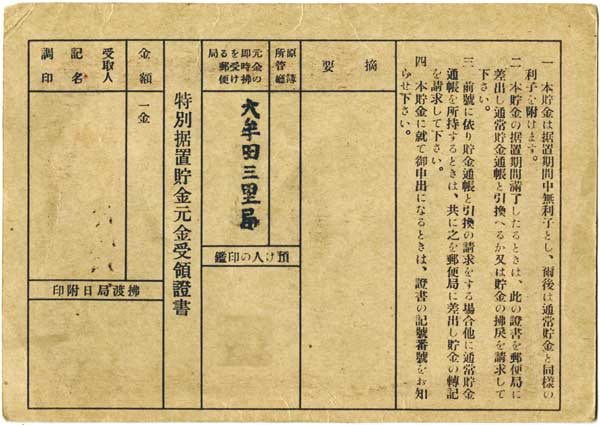 一 本貯金は据置期間中無利子とし、爾後は通常貯金と同様の
利子を附けます。
二 本貯金の据置期間滿了したるときは、此の證書を郵便局に
差出し通常貯金通帳と引換へるか又は貯金の拂戻を請求して
下さい。
三 前號に依り貯金通帳と引換の請求をする場合他に通常貯金
通帳を所持するときは、共に之を郵便局に差出し貯金の轉記
を請求して下さい。
四 本貯金に就て御申出になるときは、證書の記號番號をお知
らせ下さい。
摘要
原簿所管廳
元金の即時拂を受ける郵便局
大牟田三里局
預け人の印鑑
特別据置貯金元金受領證書
金額
一金
受取人記名調印
拂渡局日附印